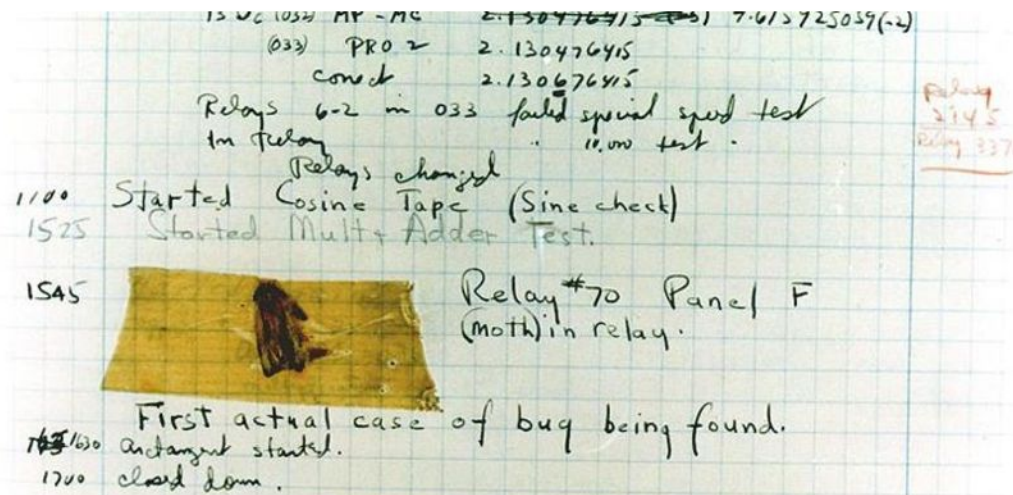 13 UC (032) MP - MC 2.130476415 4.615925059(-2)
(033) PRO 2 2.130476415
conect 2.130676415
Relays 6-2 in 033 failed special speed test
In Relay " 10,000 test .
Relay
2145
Relay 337
Relays changed
1100 Started Cosine Tape (Sine check)
1525 Started Mult + Adder Test.
1545 Relay #70 Panel F
(moth) in relay.
First actual case of bug being found.
1630 arctangent started.
1700 closed down.